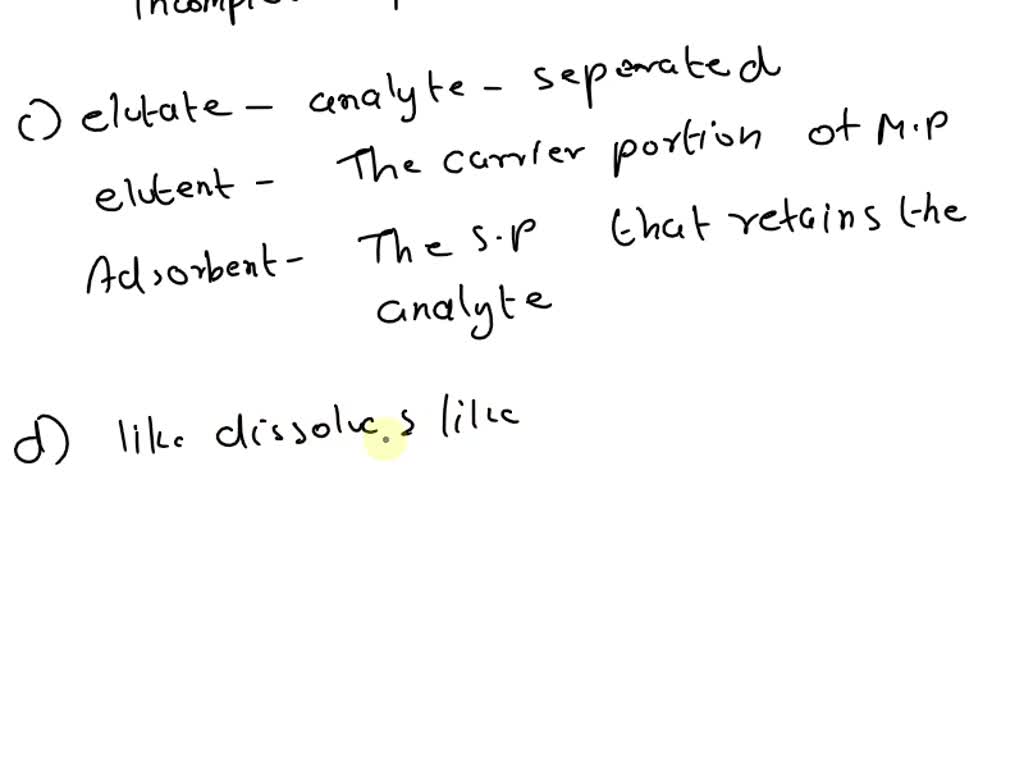 c) elutate - analyte - separated
elutent - The carrier portion of M.P
Adsorbent - The S.P that retains the
analyte
d) like dissolves like